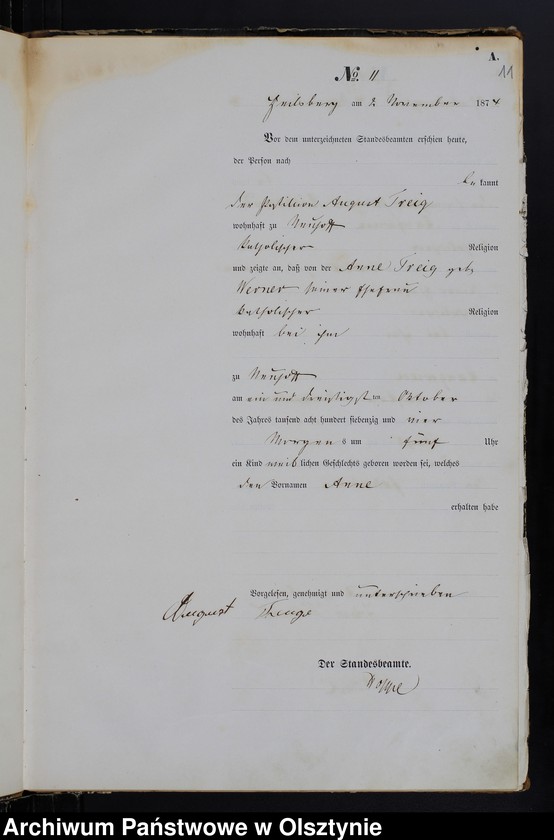 A.
11
No. 11
Heilsberg am 2 November 1874
Vor dem unterzeichneten Standesbeamten erschien heute,
der Person nach
bekannt
der Postillion August Freig
wohnhaft zu Neuhoff
katholischer Religion
und zeigte an, daß von der Anne Freig geb.
Werner seiner Ehefrau
katholischer Religion
wohnhaft bei ihm
zu Neuhoff
am ein und dreißigsten Oktober
des Jahres tausend acht hundert siebenzig und vier
Morgens um fünf Uhr
ein Kind weiblichen Geschlechts geboren worden sei, welches
den Vornamen Anne
erhalten habe
Vorgelesen, genehmigt und unterschrieben
August
Der Standesbeamte.
Archiwum Państwowe w Olsztynie